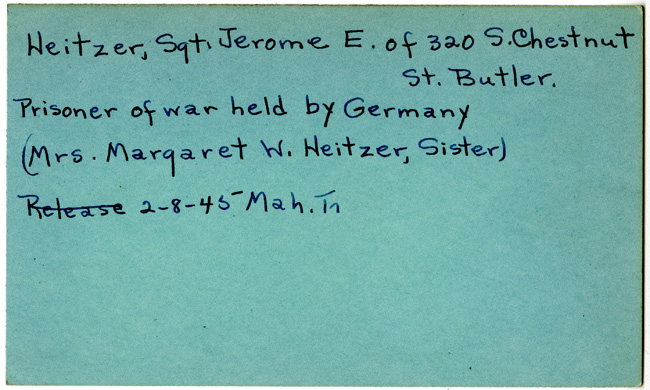 Heitzer, Sgt. Jerome E. of 320 S. Chestnut
St. Butler.
Prisoner of war held by Germany
(Mrs. Margaret W. Heitzer, Sister)
Release 2-8-45 Mah. Tr